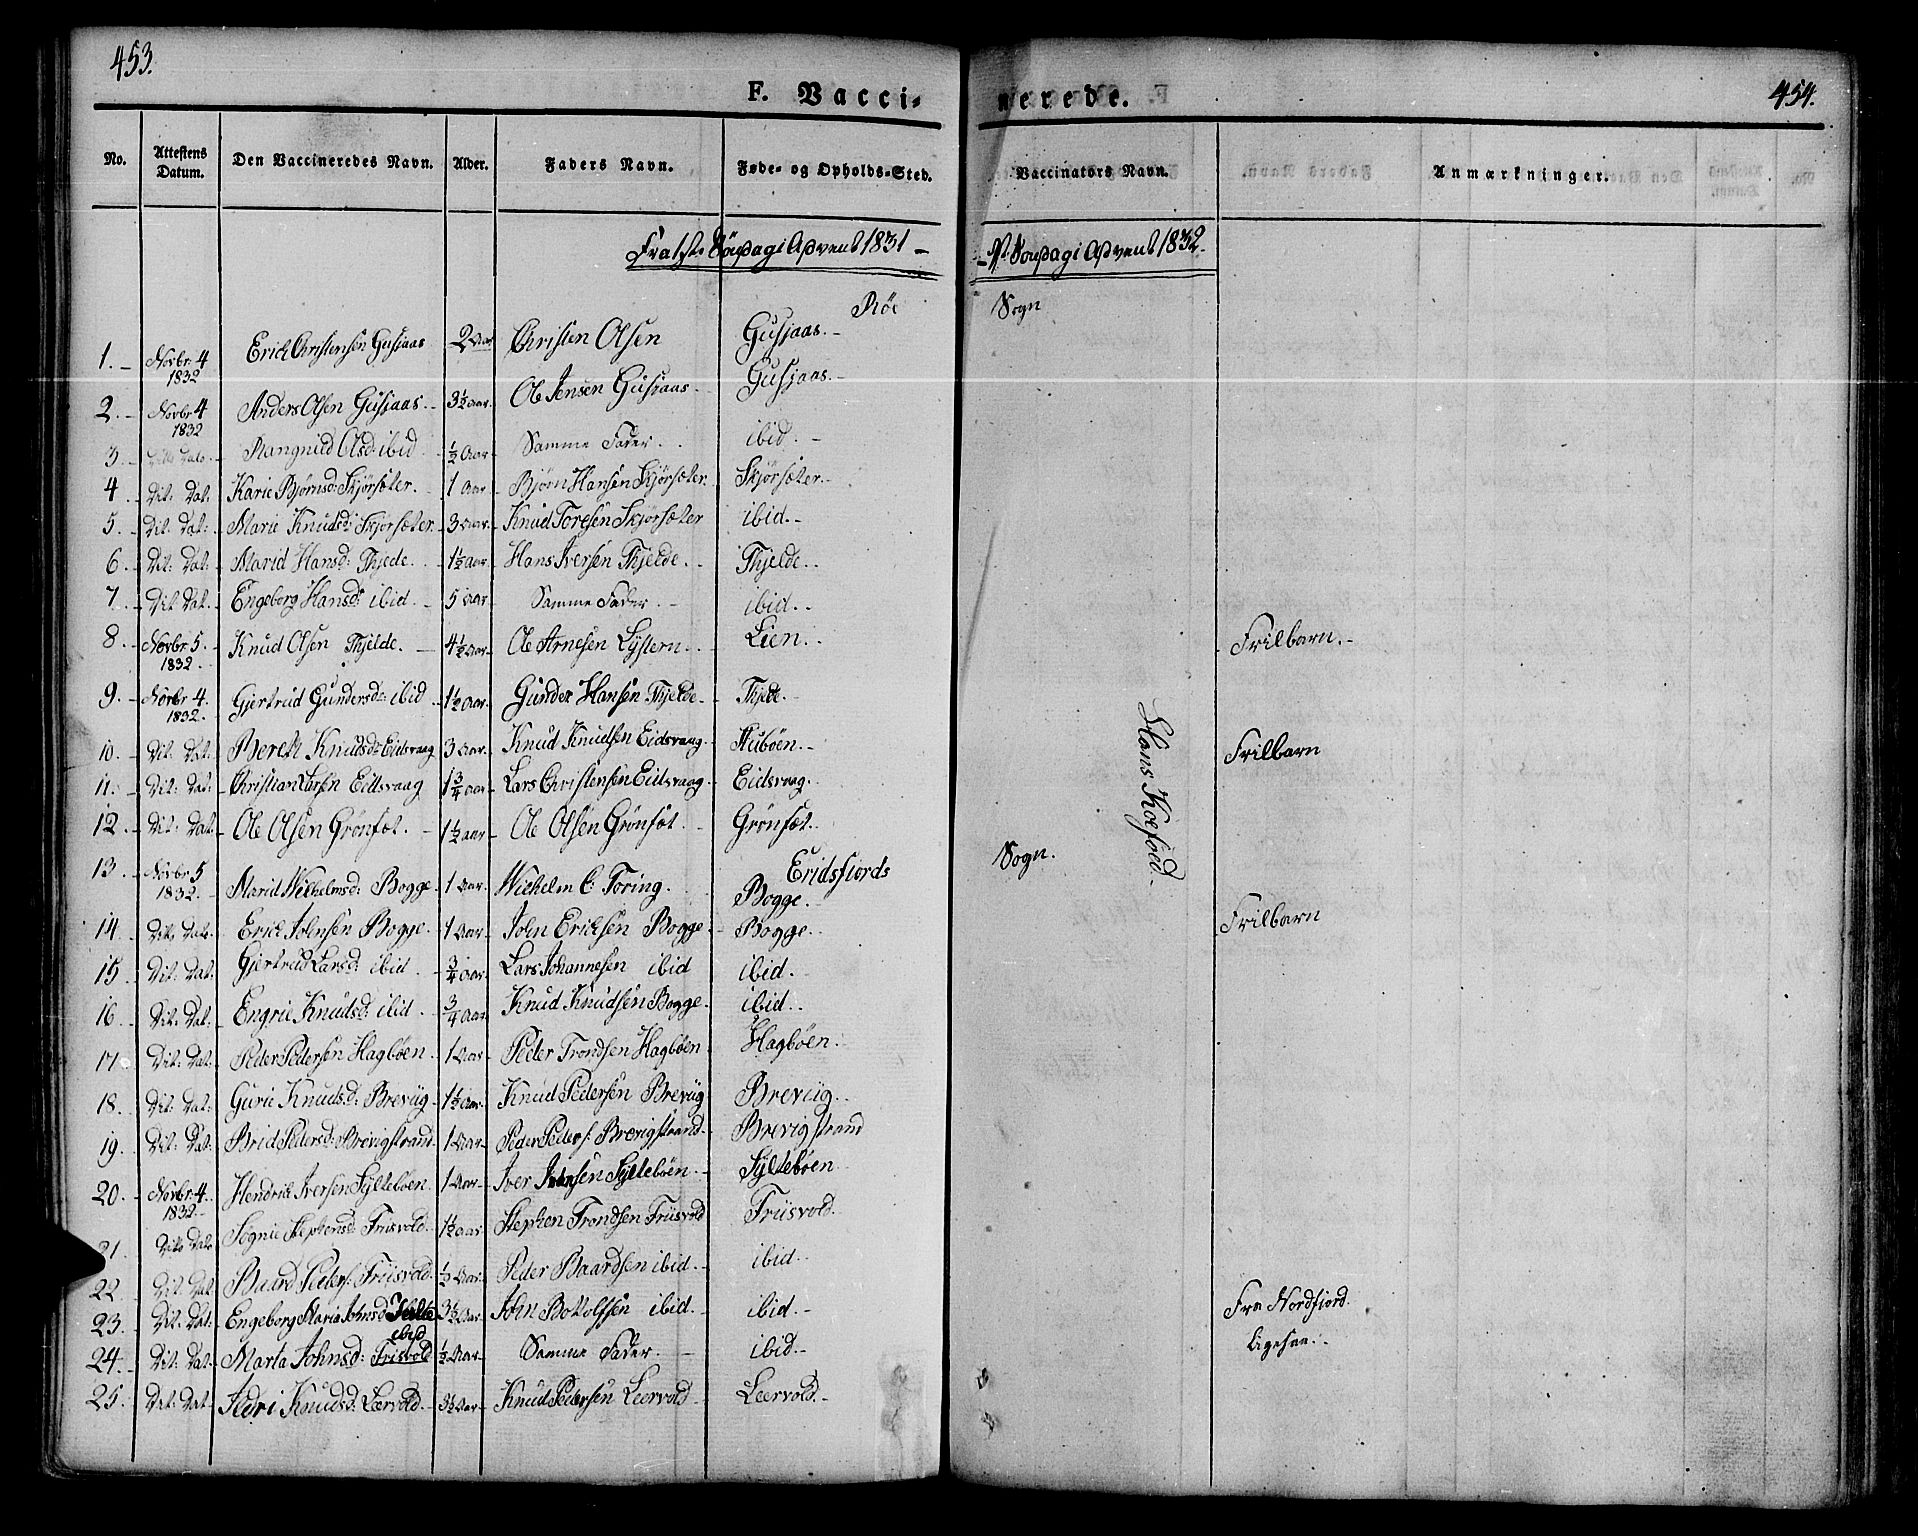 453.
454.
F. Vacci-
nerede.
No. Attestens Datum. Den Vaccineredes Navn. Alder. Faders Navn. Føde- og Opholds-Sted. Vaccinators Navn. Anmærkninger.
Fra 1ste Söndag i Advent 1831 - - 1ste Söndag i Advent 1832.
Røe Sogn
1. Novbr: 4 1832 Erich Christensen Gusjaas 2 Aar Christen Olsen Gusjaas.
2. Novbr 4 1832 Anders Olsen Gusjaas. 3½ Aar. Ole Jensen Gusjaas. Gusjaas.
3. Dito Dato Rangnild Olsd: ibid ½ Aar Samme Fader. ibid.
4 Dit: Dat: Karie Bjørnsd: Skjörsæter. 1 Aar Bjørn Hansen Skjörsæter. Skjörsæter.
5. Dit: Dat: Marie Knudsd: Skjörsæter. 3 Aar. Knud Toresen Skjörsæter ibid.
6. Dit: Dat: Marid Hansd: Thjede. 1½ Aar. Hans Iversen Thjelde. Thjelde.
7. Dit Dat. Engeborg Hansd: ibid 5 Aar. Samme Fader. ibid.
8. Novbr 5. 1832. Knud Olsen Thjelde. 4½ Aar Ole Arnesen Lystern. Lien. Frilbarn.
9. Novbr 4. 1832. Gjertrud Gundersd: ibid 1½ Aar. Gunder Hansen Thjelde Thjede.
10. Dit: Dat: Bereth Knudsd: Eidsvaag 3 Aar. Knud Knudsen Eidsvaag. Nuböen. Frilbarn
11. Dit: Dat: Christian Larsen Eidsvaag 1¾ Aar Lars Christensen Eidsvaag Eidsvaag.
12. Dit: Dat. Ole Olsen Grönset. 1½ aar Ole Olsen Grönset. Grönset.
Eridsfiords Sogn.
13. Novbr 5 1832. Marid Wilhelmsd: Bogge 1 Aar Wilhelm C. Toring. Bogge.
14 Dito Dato. Erich Johnsen Bogge. 1 Aar John Ericksen Bogge. Bogge. Frilbarn
15 Dit: Dat: Gjertrud Larsd: ibid ¾ Aar. Lars Johannesen ibid ibid.
16. Dit: Dat: Engrie Knudsd: ibid. ¾ Aar Knud Knudsen Bogge. ibid.
17. Dit: Dat: Peder Pedersen Hagböen. 1 Aar Peder Trondsen Hagböen Hagböen.
18. Dit: Dat: Gurie Knudsd: Breviig. 1½ Aar. Knud Pedersen Breviig Breviig.
19. Dit: Dat: Brid Pedersd: Brevigstrand 1 Aar. Peder Peders: Brevigstrand Brevigstrand
20. Novbr. 4. 1832. Hendrich Iversen Sylteböen. 1 Aar Iver Iversen Sylteböen. Sylteböen
21. Dito Dato Søgnie Stephensd: Friisvold. 1½ Aar Stephen Trondsen Friisvold Friisvold.
22. Dit: Dat Baard Peders: Friisvold. ½ Aar. Peder Baardsen ibid. ibid.
23. Dit: Dat: Engeborg Maria Johnsd: ibid 3½ Aar. John Bottolfsen ibid. ibid. Fra Nordfiord.
24. Dit: Dat. Marta Johnsd: Frisvold ½ Aar. Samme Fader. ibid. Ligesaa.
25. Dat: Dat: Ildri Knudsd: Leervold. 3½ Aar. Knud Pedersen Leervold Leervold.
Hans Koefoed.